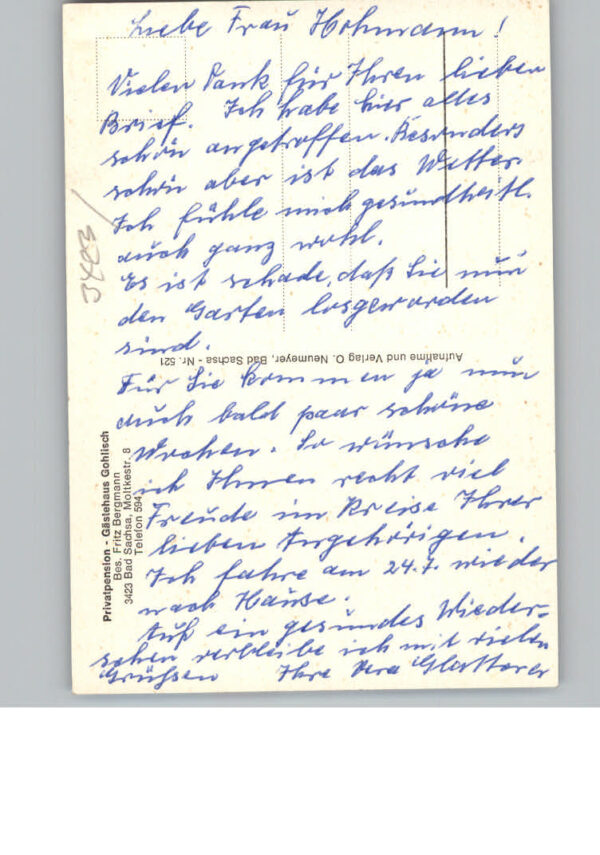 Liebe Frau Hohmann!
Vielen Dank für Ihren lieben
Brief. Ich habe hier alles
schön angetroffen. Besonders
schön aber ist das Wetter.
Ich fühle mich gesundheitl.
auch ganz wohl.
Es ist schade, daß Sie nun
den Garten losgeworden
sind.
Für Sie kommen ja nun
auch bald paar schöne
Wochen. So wünsche
ich Ihnen recht viel
Freude im Kreise Ihrer
lieben Angehörigen.
Ich fahre am 24.7. wieder
nach Hause.
Auf ein gesundes Wieder-
sehen verbleibe ich mit vielen
Grüßen Ihre Vera
Aufnahme und Verlag O. Neumeyer, Bad Sachsa - Nr. 521
Privatpension - Gästehaus Gohlisch
Bes. Fritz Bergmann
3423 Bad Sachsa, Moltkestr. 8
Telefon 594
3423